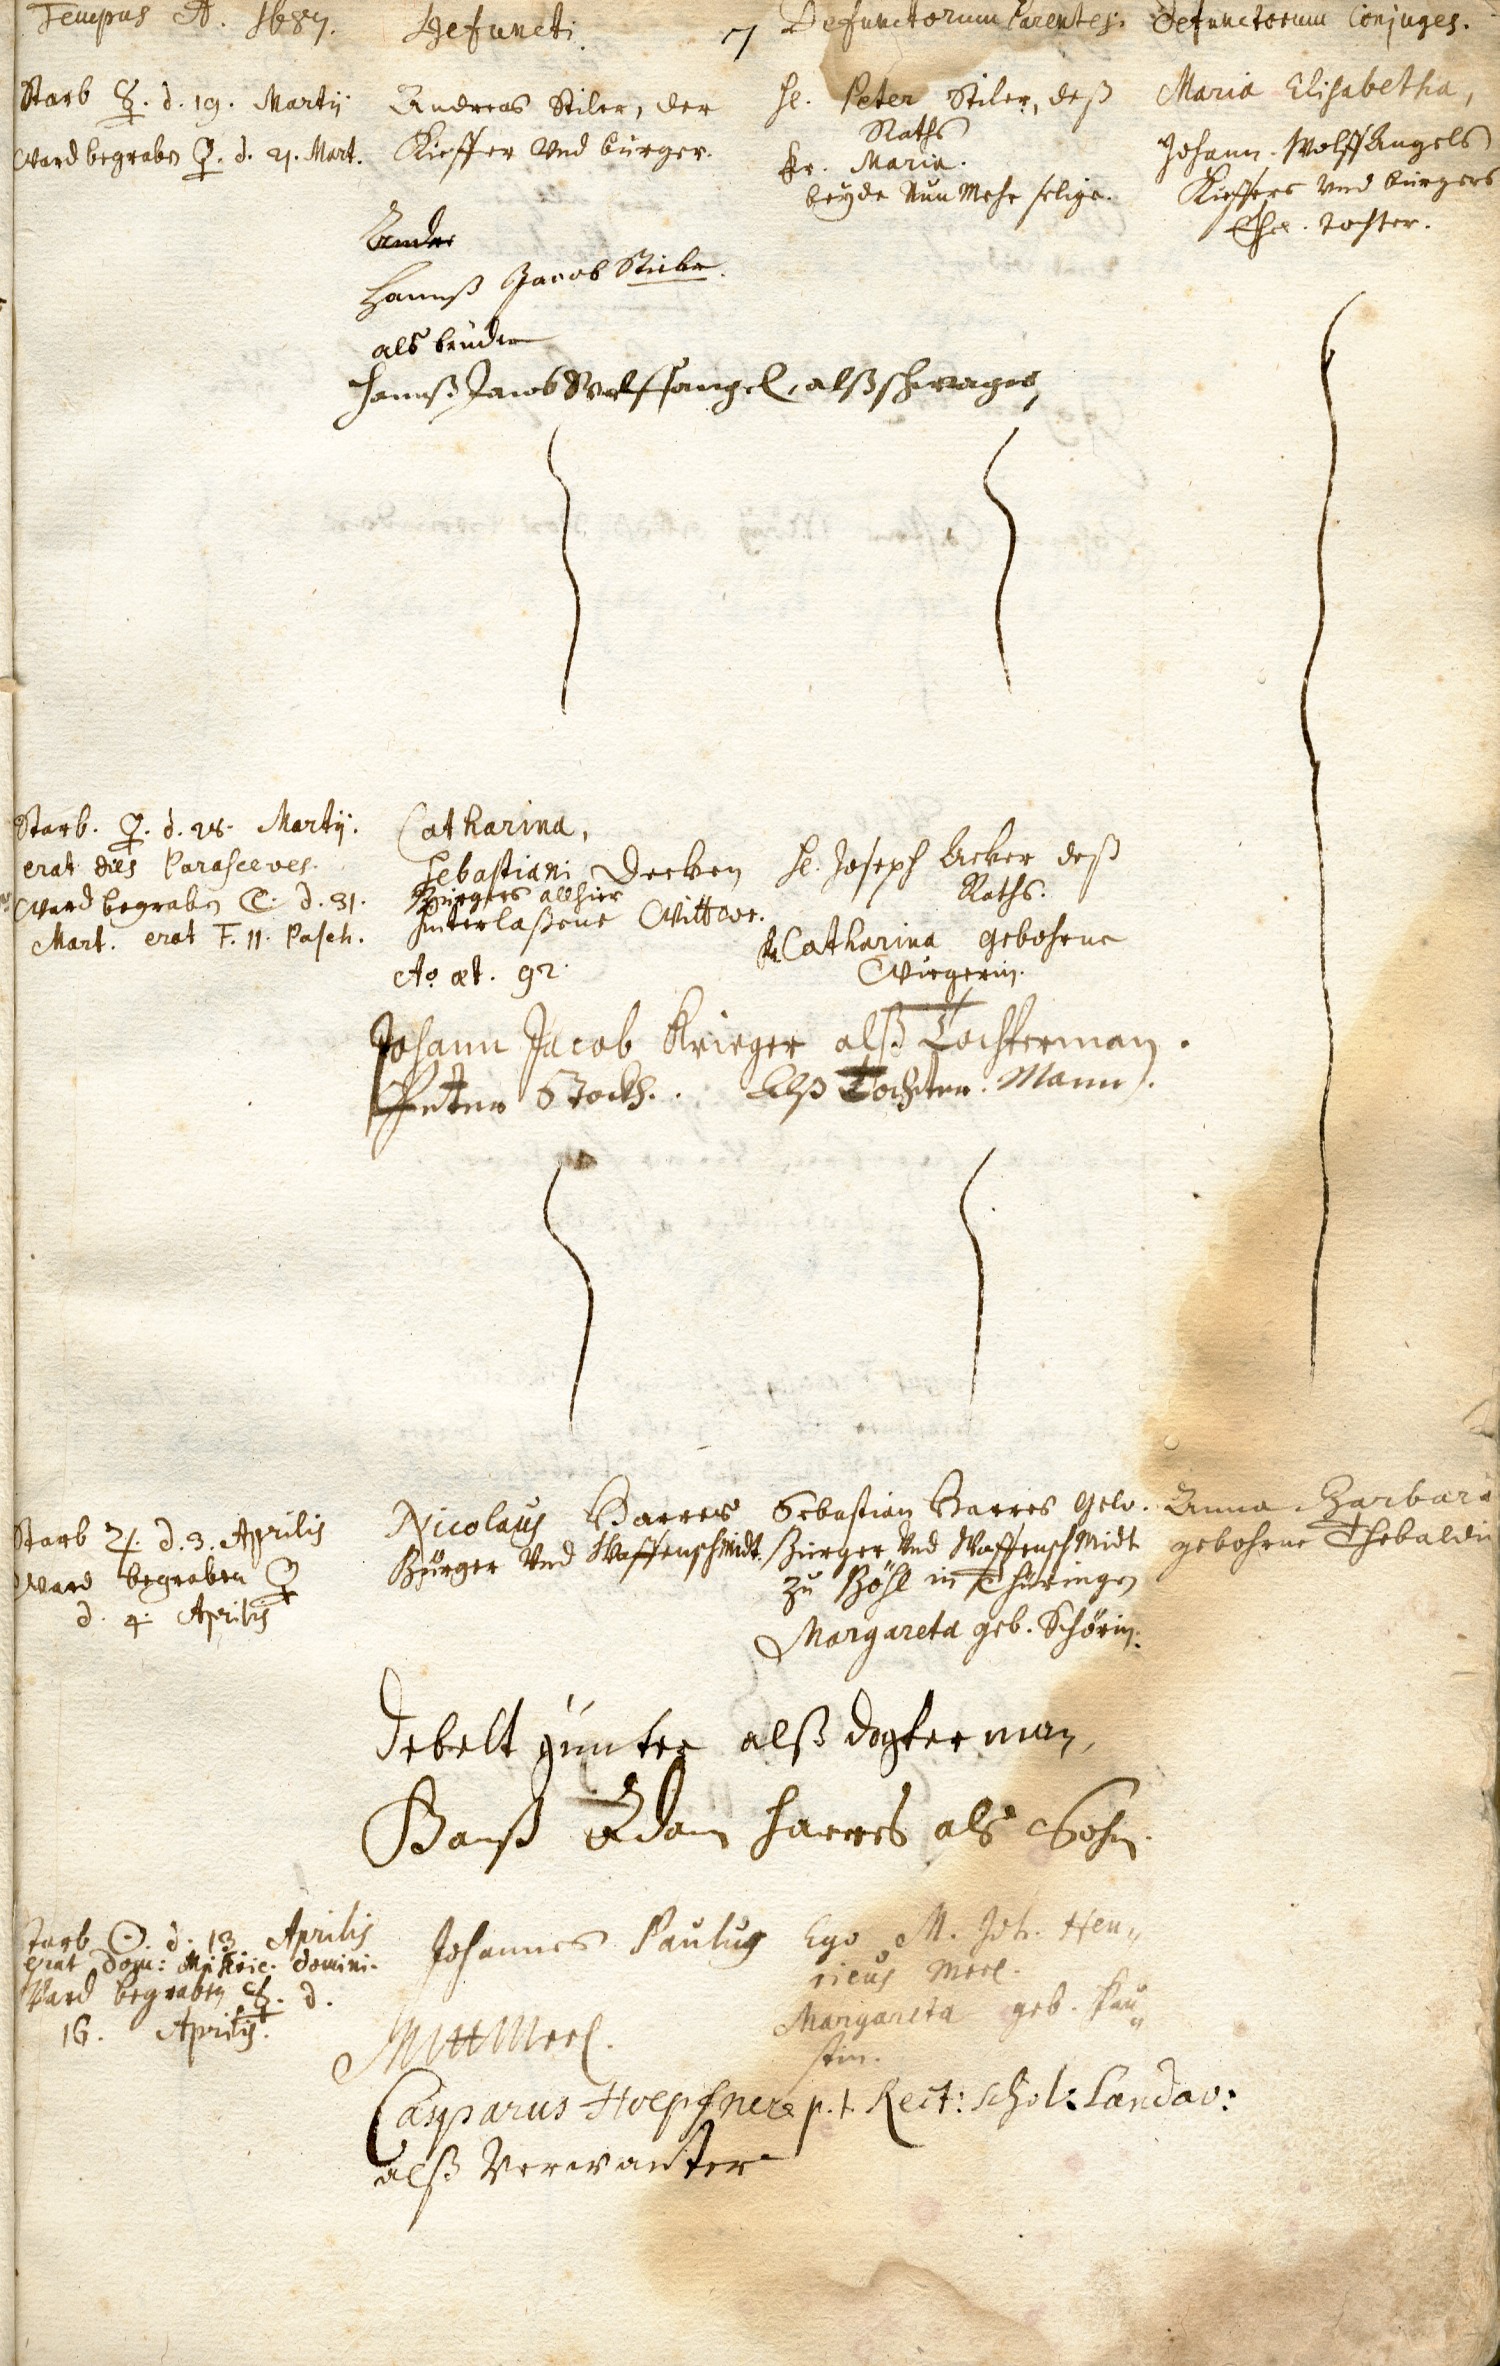 Tempus A. 1687. Defuncti 7 Defunctorum Parentes. Defunctorum Conjuges.
Starb ☿. d. 19. Martij
ward begraben ♀. d. 21. Mart.
Andreas Stiler, der
Kieffer Und bürger.
H. Peter Stiler, deß
Raths
fr. Maria.
beyde Nun Mehr selige.
Maria Elisabetha,
Johann Wolff Angels
Kieffers und bürgers
Ehe. tochter.
Hannß Jacob Stieler.
als bruder
Hannß Jacob Wolffangel, alß schwager,
Starb. ♀. d. 28. Martij.
erat dies Parasceves.
ward begraben ☾. d. 31.
Mart. erat F. 11. Pasch.
Catharina,
Sebastiani Decken
Bürgers allhier
hinterlaßene Wittwe.
Ao. æt. 92.
H. Joseph Acker deß
Raths.
fr. Catharina gebohrne
Johann Jacob Krieger alß Tochterman.
Peter Stockh. Alß Tochter Mann.
Starb ♃. d. 3. Aprilis
Ward begraben ♀
d. 4. Aprilis
Nicolaus Harres
Bürger Und Waffenschmidt.
Sebastian Harres gew.
Bürger Und Waffenschmidt
zu Böhl in Thüringen
Margareta geb. Schörin.
Anna Barbara
gebohrne Thebaldin
Debelt günter alß dogterman,
Hanß Adam Harres als Sohn.
Starb ☉. d. 13 Aprilis
erat Dom: Miseric. Domini.
Ward begraben ☿. d.
16. Aprilis.
Johannes Paulus
Ego M. Joh. Hen„
ricus Meel.
Margareta geb. Fau„
stin.
Meel.
Casparus Hoepfner p. t. Rect: Schol: Landav:
alß Verwanter